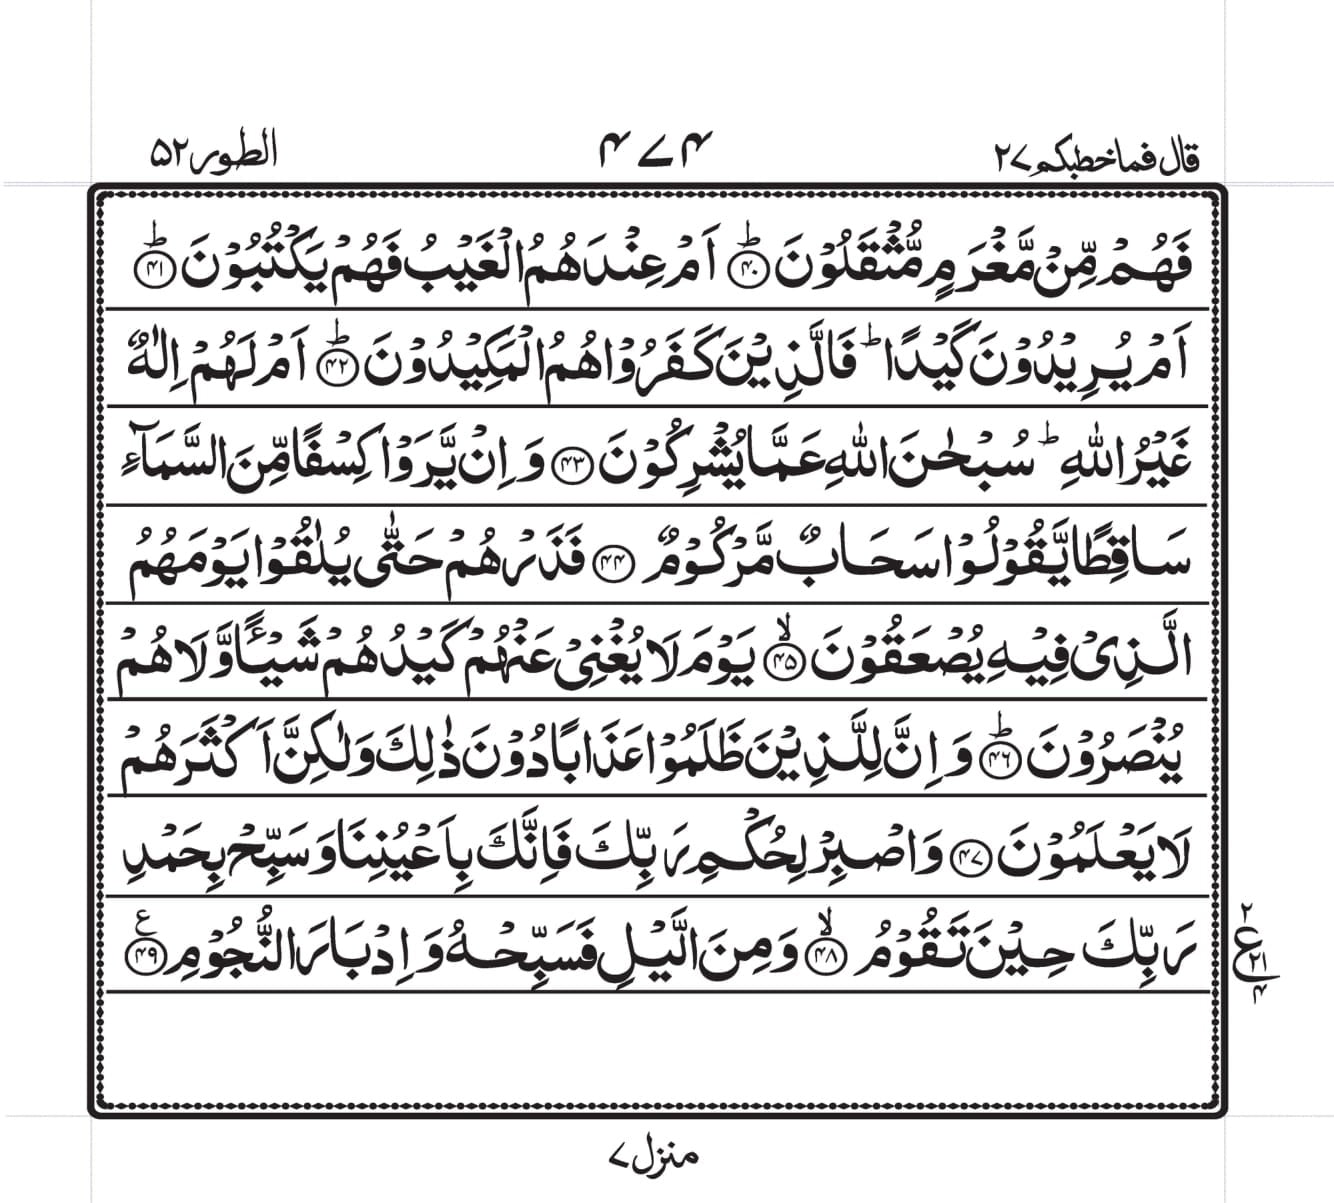 قال فما خطبكم ٢٧
٤٧٤
الطور ٥٢
فَهُمْ مِّنْ مَّغْرَمٍ مُّثْقَلُوْنَ ؕ‏﴿۴۰﴾ اَمْ عِنْدَهُمُ الْغَيْبُ فَهُمْ يَكْتُبُوْنَ ؕ‏﴿۴۱﴾
اَمْ يُرِيْدُوْنَ كَيْدًا ؕ فَالَّذِيْنَ كَفَرُوْا هُمُ الْمَكِيْدُوْنَ ؕ‏﴿۴۲﴾ اَمْ لَهُمْ اِلٰهٌ
غَيْرُ اللّٰهِ ؕ سُبْحٰنَ اللّٰهِ عَمَّا يُشْرِكُوْنَ ﴿۴۳﴾ وَاِنْ يَّرَوْا كِسْفًا مِّنَ السَّمَآءِ
سَاقِطًا يَّقُوْلُوْا سَحَابٌ مَّرْكُوْمٌ ﴿۴۴﴾ فَذَرْهُمْ حَتّٰى يُلٰقُوْا يَوْمَهُمُ
الَّذِىْ فِيْهِ يُصْعَقُوْنَ ۙ‏﴿۴۵﴾ يَوْمَ لَا يُغْنِىْ عَنْهُمْ كَيْدُهُمْ شَيْـًٔا وَّلَا هُمْ
يُنْصَرُوْنَ ؕ‏﴿۴۶﴾ وَاِنَّ لِلَّذِيْنَ ظَلَمُوْا عَذَابًا دُوْنَ ذٰلِكَ وَلٰكِنَّ اَكْثَرَهُمْ
لَا يَعْلَمُوْنَ ﴿۴۷﴾ وَاصْبِرْ لِحُكْمِ رَبِّكَ فَاِنَّكَ بِاَعْيُنِنَا وَسَبِّحْ بِحَمْدِ
رَبِّكَ حِيْنَ تَقُوْمُ ۙ‏﴿۴۸﴾ وَمِنَ الَّيْلِ فَسَبِّحْهُ وَاِدْبَارَ النُّجُوْمِ ﴿۴۹﴾ ع
٢
ع ٢١
۴
منزل ٧